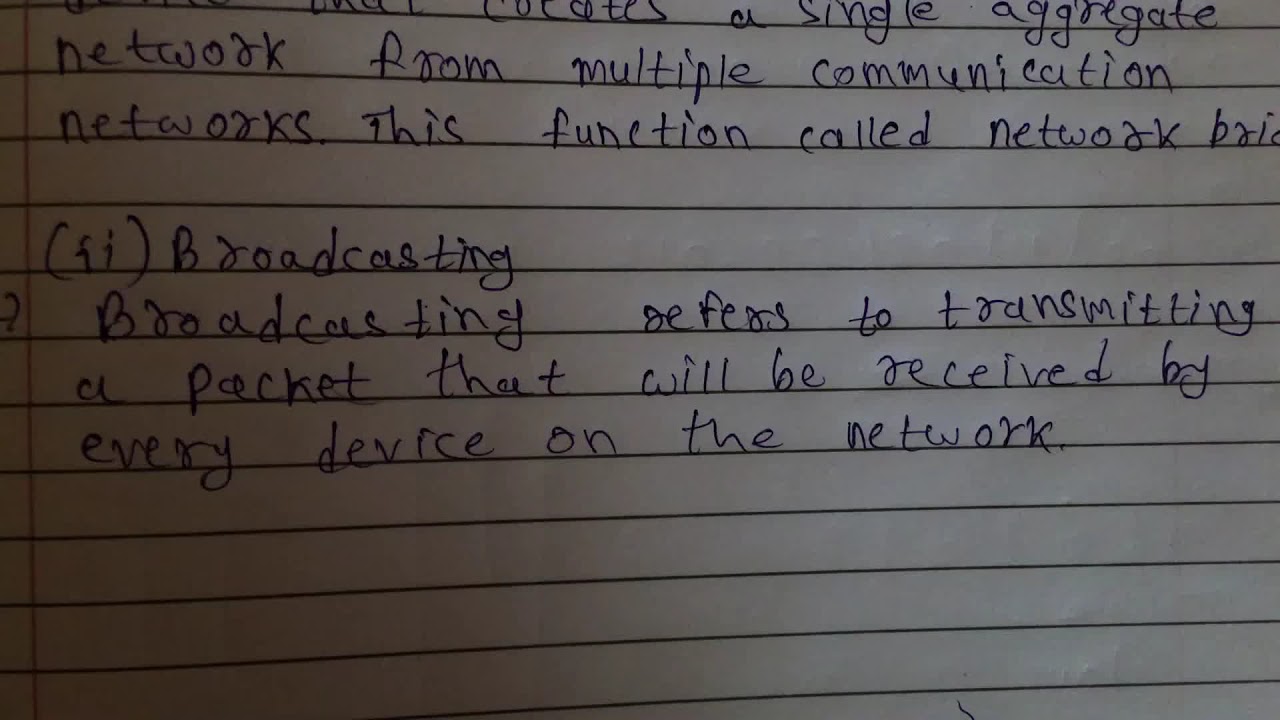 that creates a single aggregate
network from multiple communication
networks. This function called network bri
(ii) Broadcasting
Broadcasting refers to transmitting
a packet that will be received by
every device on the network.